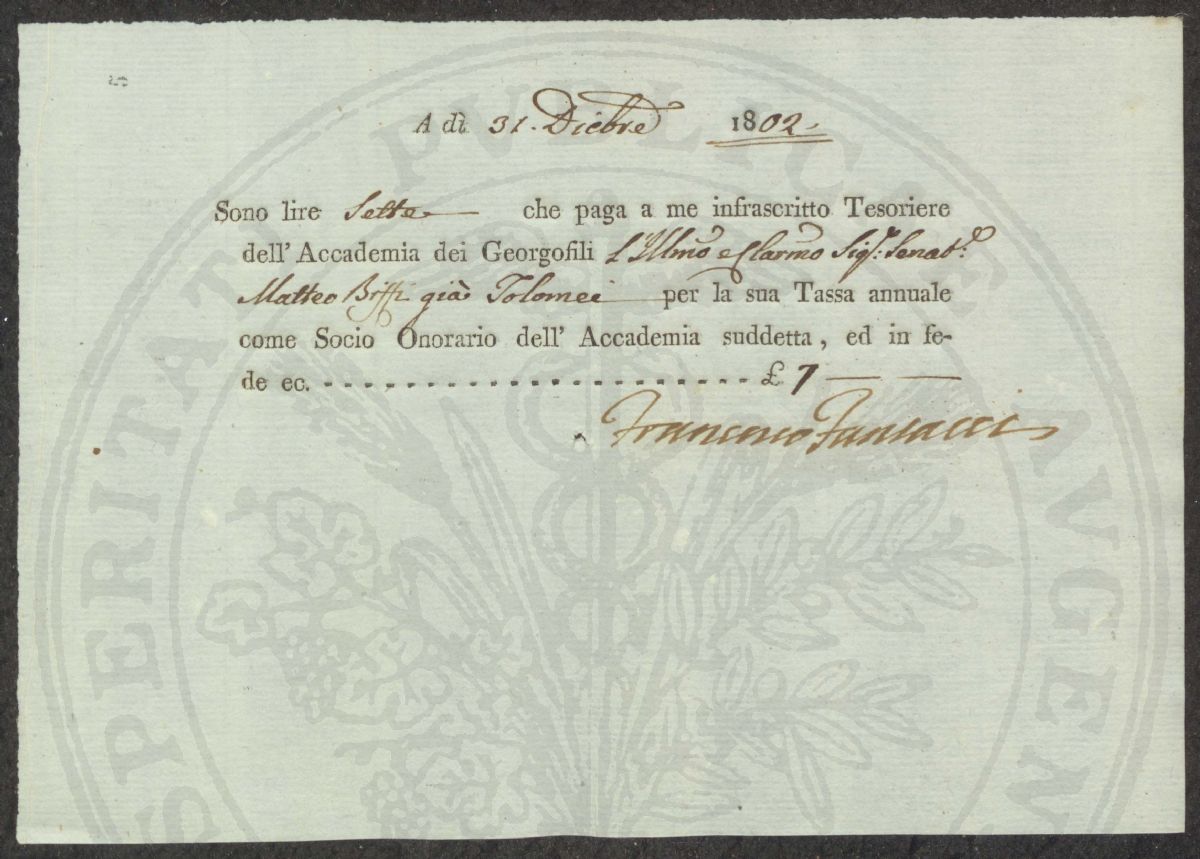 A dì 31. Dicbre 1802.
Sono lire Sette che paga a me infrascritto Tesoriere
dell' Accademia dei Georgofili L'Illmo e Clarmo Sigr: Senatre:
Matteo Biffi già Tolomei per la sua Tassa annuale
come Socio Onorario dell' Accademia suddetta, ed in fe-
de ec. £ 7
Francesco
PROSPERITATI PVBLICAE AVGEN